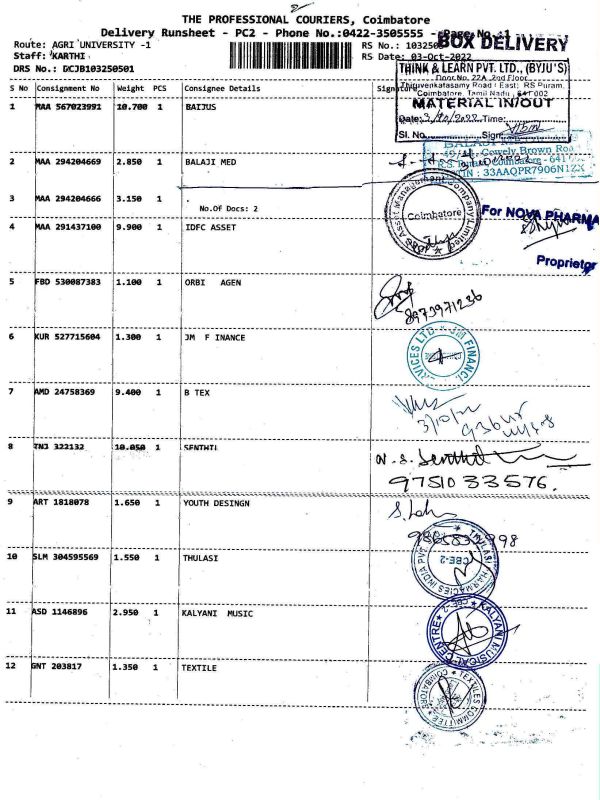 THE PROFESSIONAL COURIERS, Coimbatore
Delivery Runsheet - PC2 - Phone No.:0422-3505555 - Page No. 1
BOX DELIVERY
Route: AGRI UNIVERSITY -1
RS No.: 103250
Staff: KARTHI
RS Date: 03-Oct-2022
DRS No.: DCJB103250501
THINK & LEARN PVT. LTD., (BYJU'S)
Door No. 22A, 2nd Floor
Thiruvenkatasamy Road (East), RS Puram,
Coimbatore, Tamil Nadu, 641 002
MATERIAL IN/OUT
Date: 3/10/2022 Time:
Sl. No. Sign
S No Consignment No Weight PCS Consignee Details Signature
1 MAA 567023991 10.700 1 BAIJUS
2 MAA 294204669 2.850 1 BALAJI MED
49/ Cowely Brown Road
R.S. Coimbatore - 641
TIN : 33AAQPR7906N1ZX
3 MAA 294204666 3.150 1 .
No.Of Docs: 2
4 MAA 291437100 9.900 1 IDFC ASSET
Asset Management Company Limited
Coimbatore
For NOVA PHARMA
Proprietor
5 FBD 530087383 1.100 1 ORBI AGEN
8973971236
6 KUR 527715604 1.300 1 JM F INANCE
VICES LTD JM FINANCI
7 AMD 24758369 9.400 1 B TEX
3/10/22
8 TNJ 322132 10.050 1 SENTHIL
N. S. Senthil
9751033576.
9 ART 1818078 1.650 1 YOUTH DESINGN
10 SLM 304595569 1.550 1 THULASI
THULASI PHARMACIES INDIA PVT
CBE-2
11 ASD 1146896 2.950 1 KALYANI MUSIC
KALYANI MUSICAL CENTRE
CBE-2
12 GNT 203817 1.350 1 TEXTILE
TEXTILES COMMITTEE
COIMBATORE